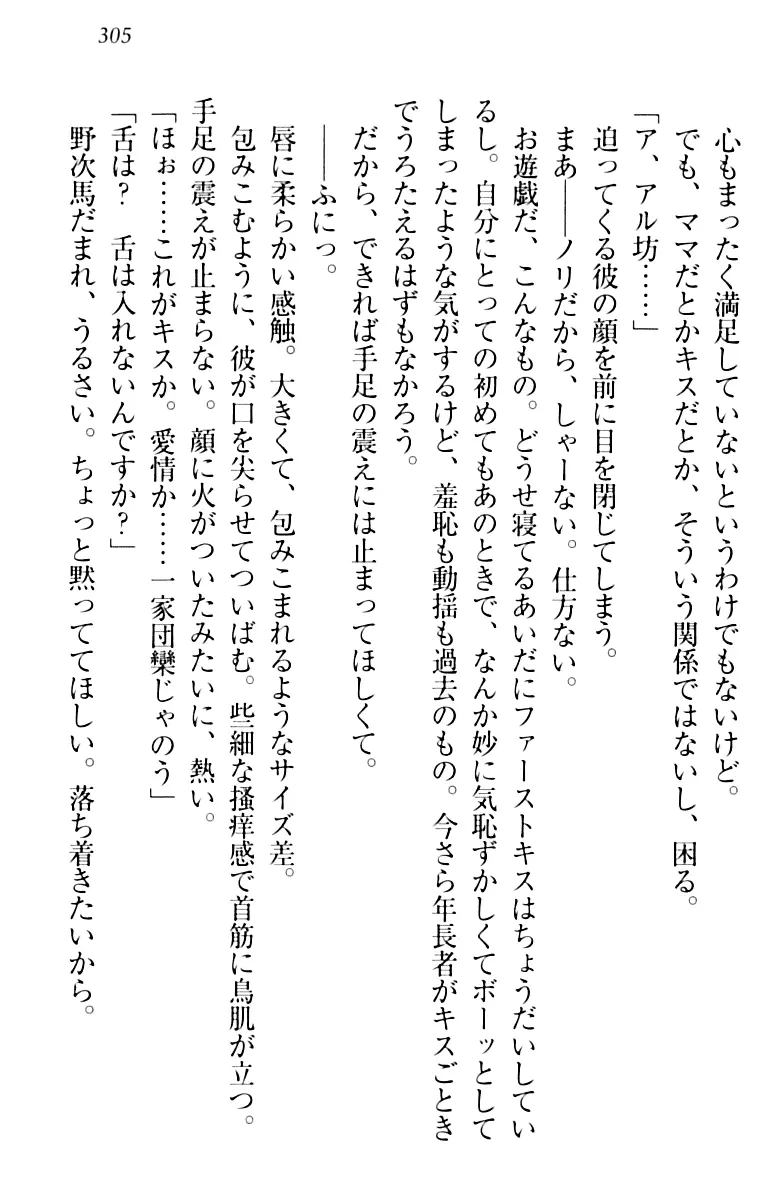 305
心もまったく満足していないというわけでもないけど。
でも、ママだとかキスだとか、そういう関係ではないし、困る。
「ア、アル坊……」
迫ってくる彼の顔を前に目を閉じてしまう。
まあ――ノリだから、しゃーない。仕方ない。
お遊戯だ、こんなもの。どうせ寝てるあいだにファーストキスはちょうだいしてい
るし。自分にとっての初めてもあのときで、なんか妙に気恥ずかしくてボーッとして
しまったような気がするけど、羞恥も動揺も過去のもの。今さら年長者がキスごとき
でうろたえるはずもなかろう。
だから、できれば手足の震えには止まってほしくて。
――ふにっ。
唇に柔らかい感触。大きくて、包みこまれるようなサイズ差。
包みこむように、彼が口を尖らせてついばむ。些細な掻痒感で首筋に鳥肌が立つ。
手足の震えが止まらない。顔に火がついたみたいに、熱い。
「ほぉ……これがキスか。愛情か……一家団欒じゃのう」
「舌は？　舌は入れないんですか？」
野次馬だまれ、うるさい。ちょっと黙っててほしい。落ち着きたいから。